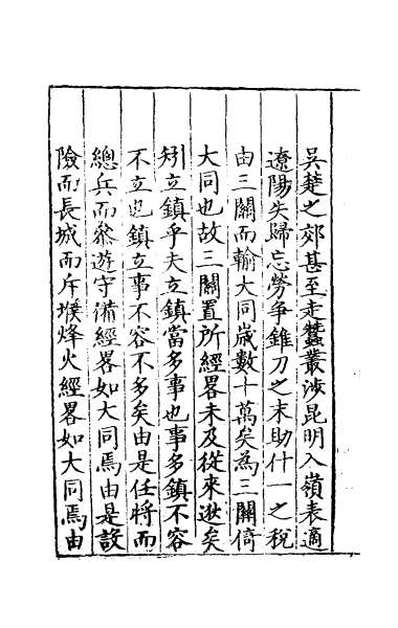 吳楚之郊甚至走蠶叢涉昆明入嶺表適
遼陽失歸忘勞爭錐刀之末助什一之稅
由三關而輸大同歲數十萬矣為三關倚
大同也故三關置所經畧未及從來逖矣
矧立鎮乎夫立鎮當多事也事多鎮不容
不立也鎮立事不容不多矣由是任將而
總兵而叅遊守備經畧如大同焉由是設
險而長城而斥堠烽火經畧如大同焉由